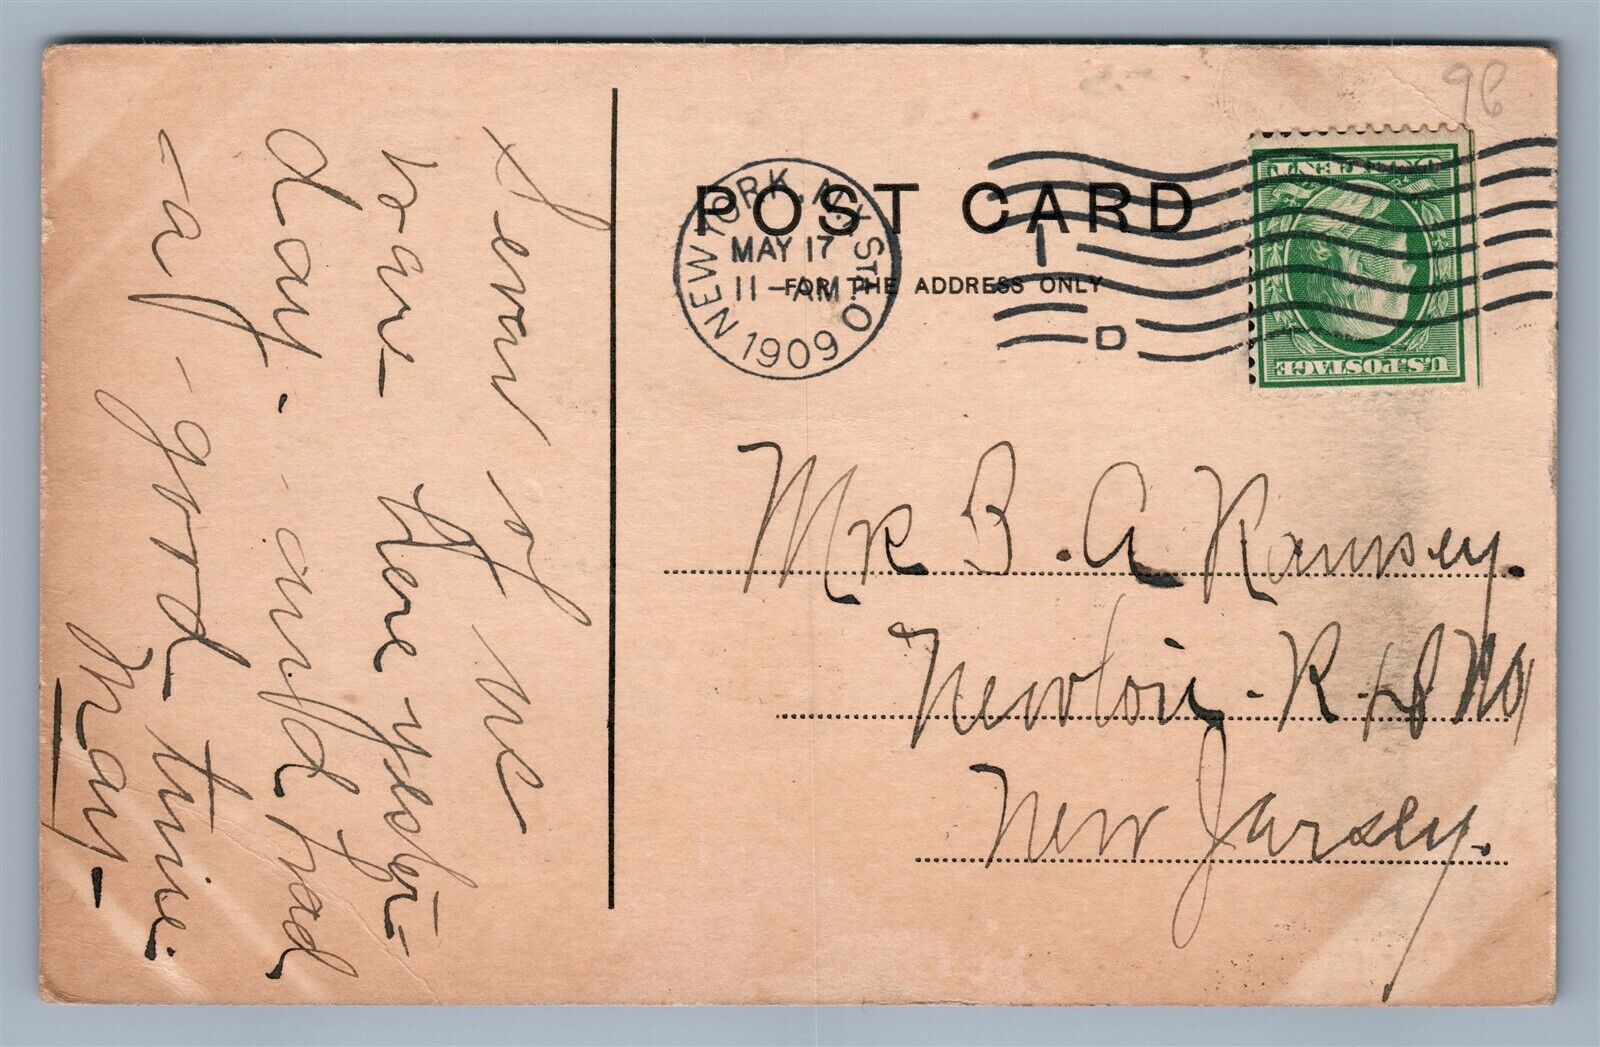 96
POST CARD
FOR THE ADDRESS ONLY
NEW YORK, N.Y. STA. O
MAY 17
11-AM
1909
1
D
U.S. POSTAGE
ONE CENT
Mr B. A Ramsey.
Newton - R. D No
New Jersey.
Sevan of us
ware here yester-
day - and had
- a - good time.
May -